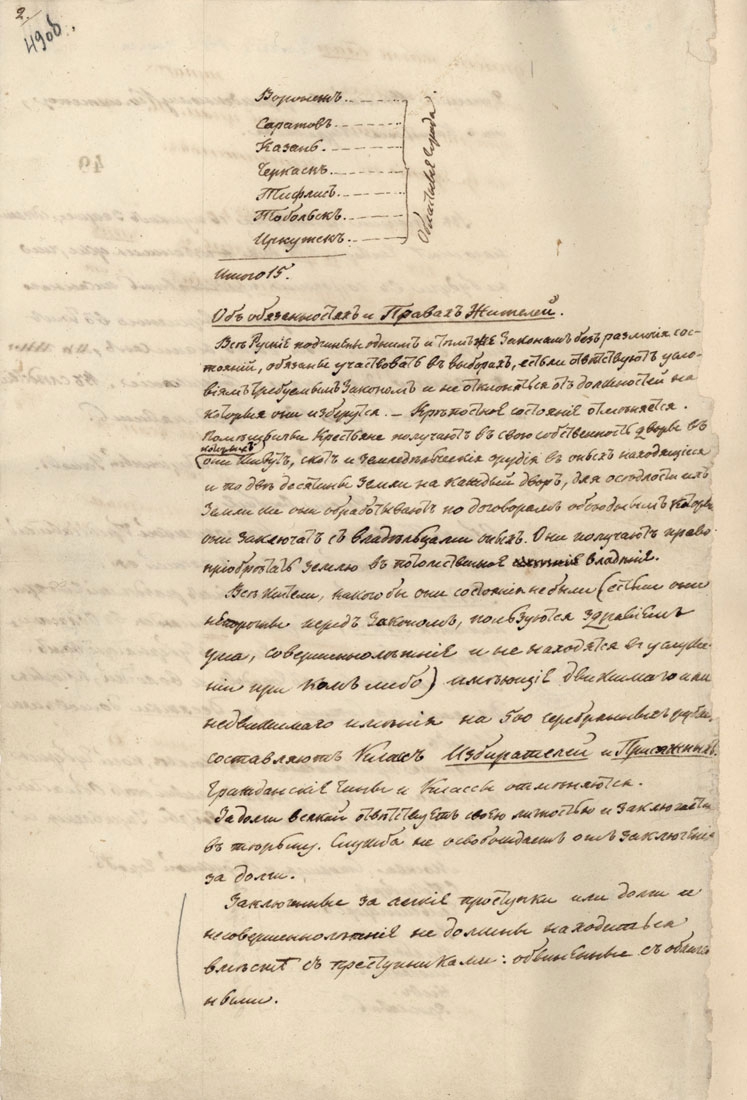 2.
4908.
Воронежъ.
Саратовъ.
Казань.
Черкаскъ.
Тифлисъ.
Тобольскъ.
Иркутскъ.
Областные города.
Итого 15.
Объ обязанностяхъ и Правахъ Жителей.
Всѣ Рускіе подчинены однимъ и тѣмъ же Законамъ безъ различія сос-
тояній, обязаны участвовать въ выборахъ, естьли отвѣтствуютъ усло-
віямъ требуемымъ Закономъ и не отклоняться отъ должностей на
которыя они изберутся. – Крѣпостное состояніе отмѣняется.
Помѣщичьи Крестьяне получаютъ въ свою собственность дворы въ
которыхъ
они живутъ, скотъ и земледѣльческія орудія въ оныхъ находящіяся
и по двѣ десятины земли на каждый дворъ, для осѣдлости ихъ
Земли же они обрабатываютъ по договорамъ обоюднымъ которые
они заключатъ съ владѣльцами оныхъ. Они получаютъ право
пріобрѣтать землю въ потомственное владѣніе.
Всѣ жители, какого бы они состоянія не были (естьли они
непорочны передъ Закономъ, пользуются здравіемъ
ума, совершеннолѣтніе и не находятся въ услуже-
ніи при комъ либо) имѣющіе движимаго или
недвижимаго имѣнія на 500 серебряныхъ рублей
составляютъ Классъ Избирателей и Присяжныхъ.
Гражданскіе Чины и Классы отмѣняются.
За долги всякой отвѣтствуетъ своею личностью и заключается
въ тюрьму. Служба не освобождаетъ отъ заключенія
за долги.
Заключенные за легкіе проступки или долги и
несовершеннолѣтніе не должны находиться
вмѣстѣ съ преступниками: обвиненные съ обличен-
ными.